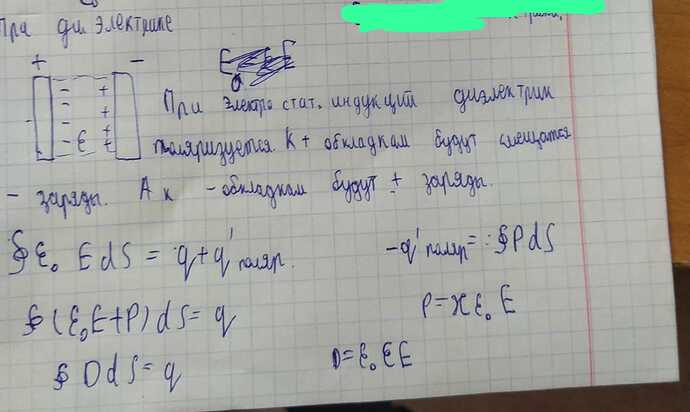 При диэлектрике
+ -
При электростат. индукций диэлектрик
поляризуется. К + обкладкам будут смещатся
- заряды. А к - обкладкам будут + заряды.
∮ε₀ E dS = q + q' поляр.
-q' поляр = ∮P dS
∮(ε₀E+P) dS = q
P = χ ε₀ E
∮ D dS = q
D = ε₀ ε E